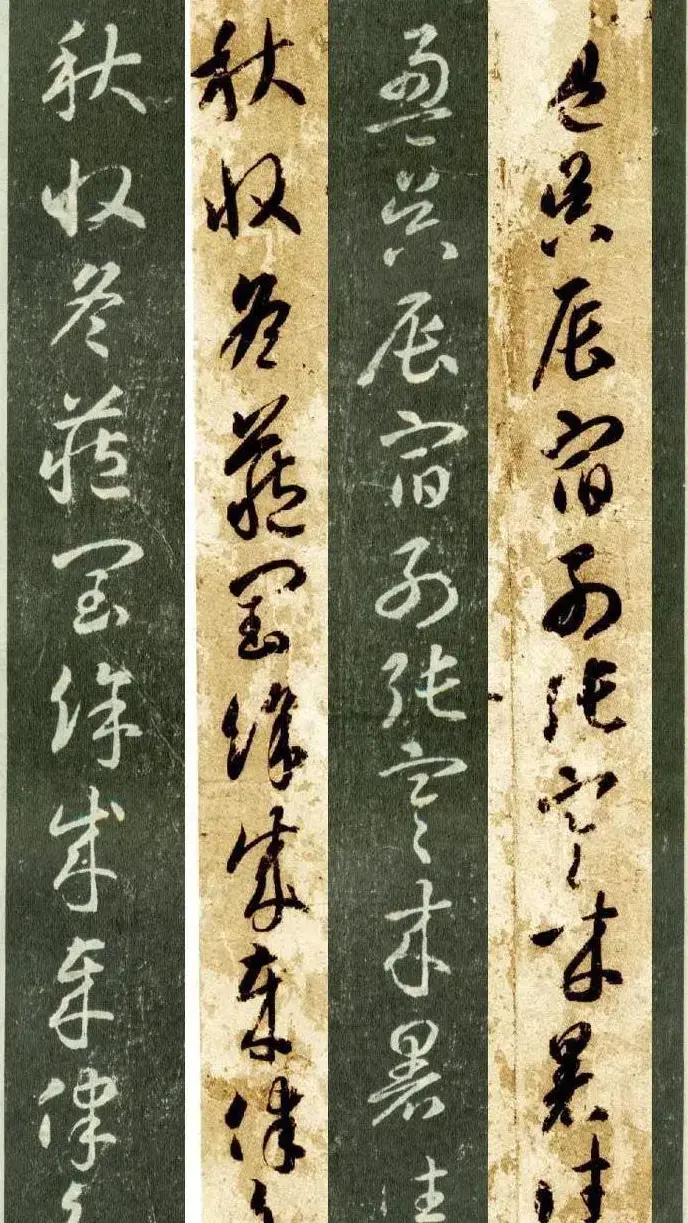 盈昃辰宿列張寒來暑往
盈昃辰宿列張寒來暑往
秋收冬藏閏餘成歲律
秋收冬藏閏餘成歲律